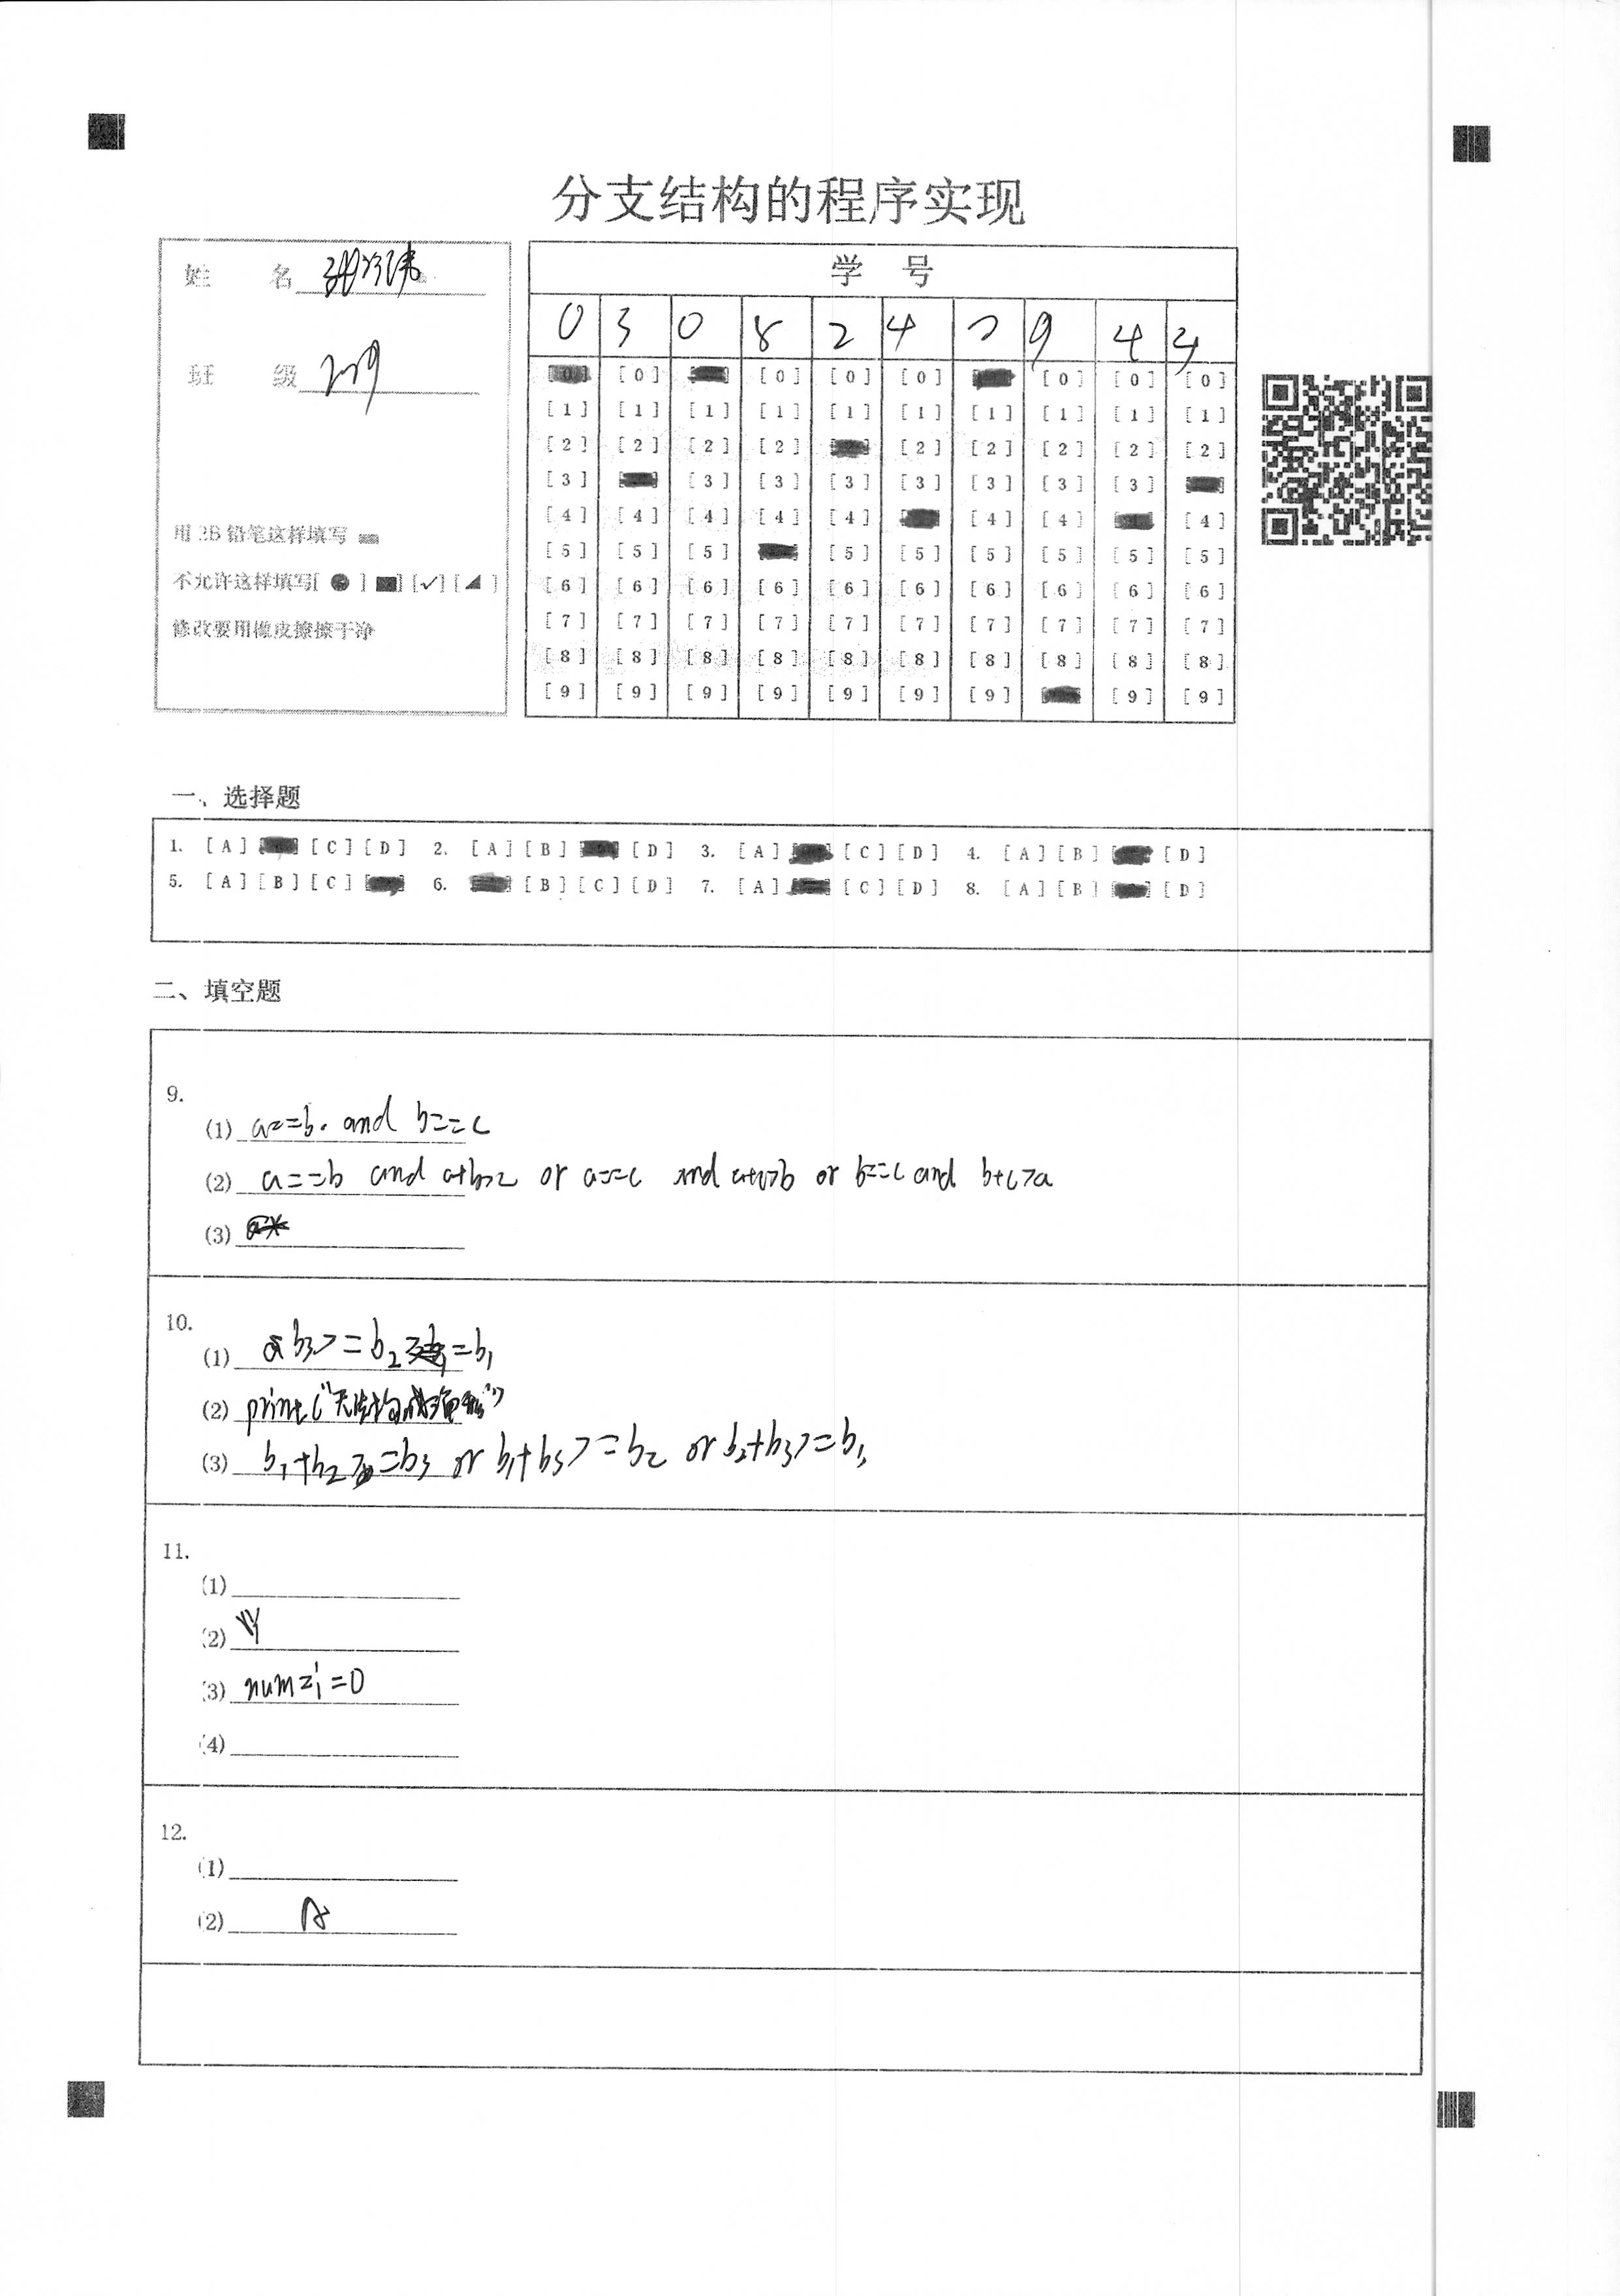 分支结构的程序实现
姓 名
班 级 209
用 2B 铅笔这样填写
不允许这样填写[ ● ] ■] [✓] [◢ ]
修改要用橡皮擦擦干净
学 号
0 3 0 8 2 4 0 9 4
[0] [0] [0] [0] [0] [0] [0] [0]
[1] [1] [1] [1] [1] [1] [1] [1] [1] [1]
[2] [2] [2] [2] [2] [2] [2] [2] [2]
[3] [3] [3] [3] [3] [3] [3] [3]
[4] [4] [4] [4] [4] [4] [4] [4]
[5] [5] [5] [5] [5] [5] [5] [5] [5]
[6] [6] [6] [6] [6] [6] [6] [6] [6] [6]
[7] [7] [7] [7] [7] [7] [7] [7] [7] [7]
[8] [8] [8] [8] [8] [8] [8] [8] [8] [8]
[9] [9] [9] [9] [9] [9] [9] [9] [9]
一、选择题
1. [A] [C] [D] 2. [A] [B] [D] 3. [A] [C] [D] 4. [A] [B] [D]
5. [A] [B] [C] 6. [B] [C] [D] 7. [A] [C] [D] 8. [A] [B] [D]
二、填空题
9.
(1) a==b. and b==c
(2) a==b and a+b>c or a==c and a+c>b or b==c and b+c>a
(3)
10.
(1) b3>=b2 =b1
(2) print("无法构成三角形")
(3) b1+b2>=b3 or b1+b3>=b2 or b2+b3>=b1
11.
(1)
(2)
(3) num=i=0
(4)
12.
(1)
(2) A